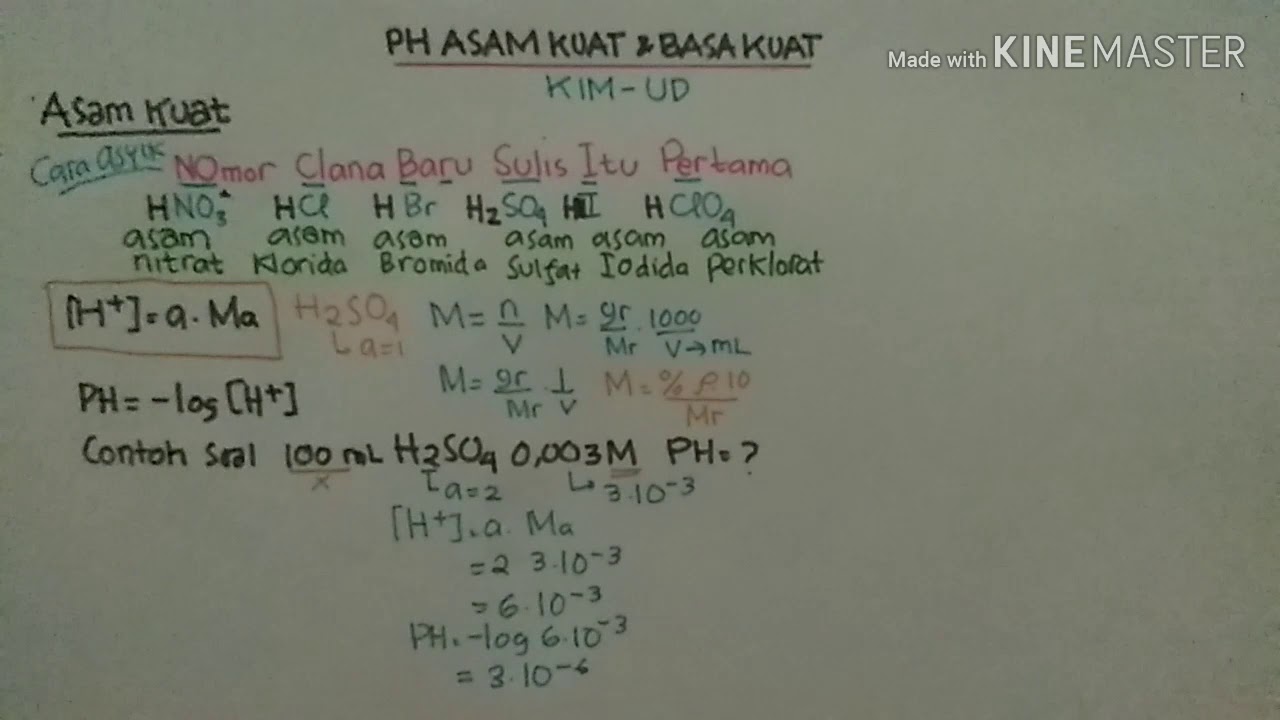 PH ASAM KUAT & BASA KUAT
Made with KINEMASTER
KIM-UD
Asam Kuat
Cara asyik NOmor Clana Baru Sulis Itu Pertama
HNO3 HCl HBr H2SO4 HI HClO4
asam asam asam asam asam asam
nitrat Klorida Bromida Sulfat Iodida perklorat
[H+] = a. Ma H2SO4 M= n/V M= gr/Mr . 1000/V→mL
↳ a=1
M= gr/Mr 1/V M= % ρ 10/Mr
PH = -log [H+]
Contoh Soal 100 mL H2SO4 0,003M PH = ?
x ↳ a=2 ↳ 3.10-3
[H+] = a. Ma
= 2 3.10-3
= 6.10-3
PH = -log 6.10-3
= 3.10-6